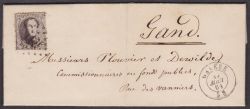 Gand.
Messieurs Plouvier et Dewilde,
Commissionnaires en fonds publics,
Rue des vanniers.